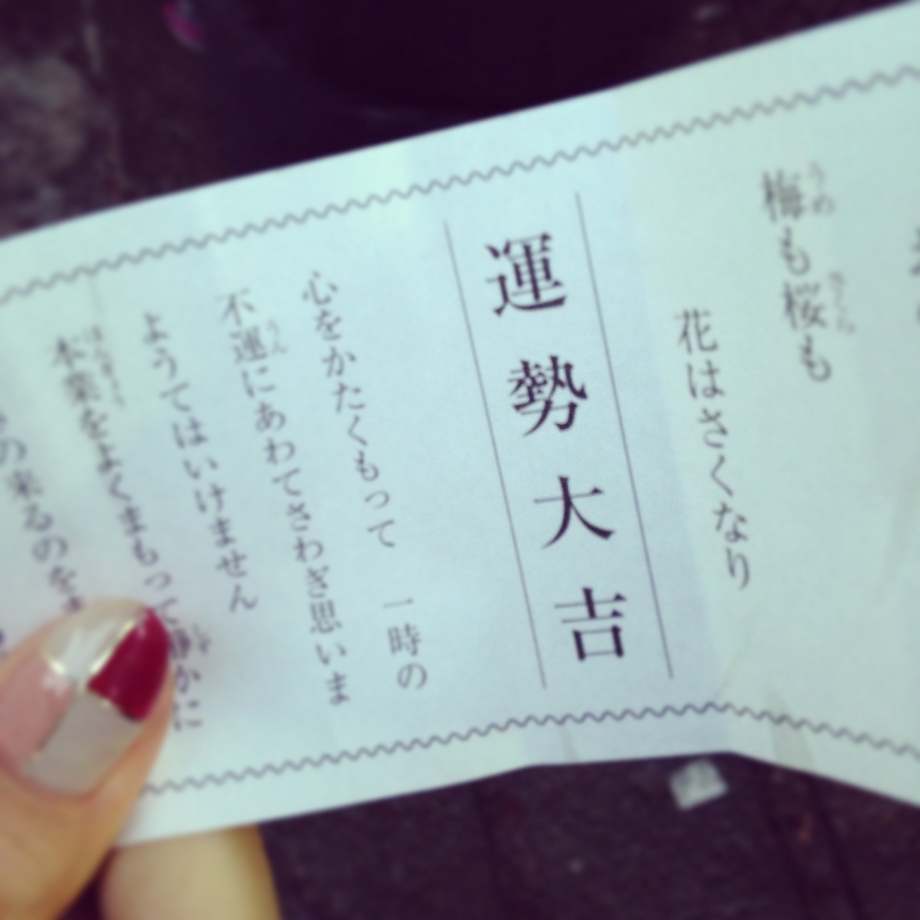 梅も桜も
花はさくなり
運勢大吉
心をかたくもって 一時の
不運にあわてさわぎ思いま
ようてはいけません
本業をよくまもって静かに
の来るのを